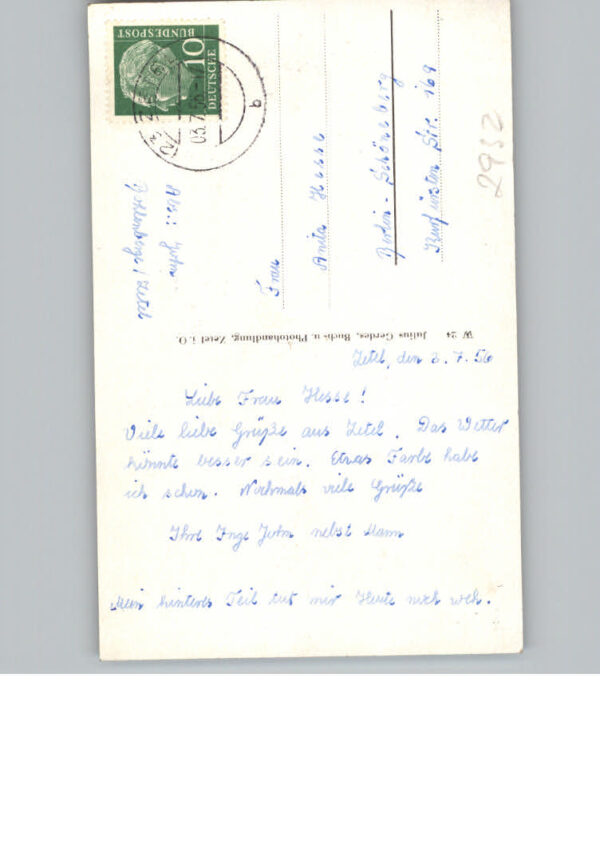 DEUTSCHE
BUNDESPOST
10
03.7.56
b
Abs.: John
Bohlenberge / Zetel
Frau
Anita Hesse
Berlin-Schöneberg
Kurfürsten Str. 169
2932
W 24 Julius Gerdes, Buch- u. Photohandlung, Zetel i. O.
Zetel, den 3.7.56
Liebe Frau Hesse!
Viele liebe Grüße aus Zetel. Das Wetter
könnte besser sein. Etwas Farbe habe
ich schon. Nochmals viele Grüße
Ihre Inge John nebst Mann
Mein hinteres Teil tut mir Heute noch weh.